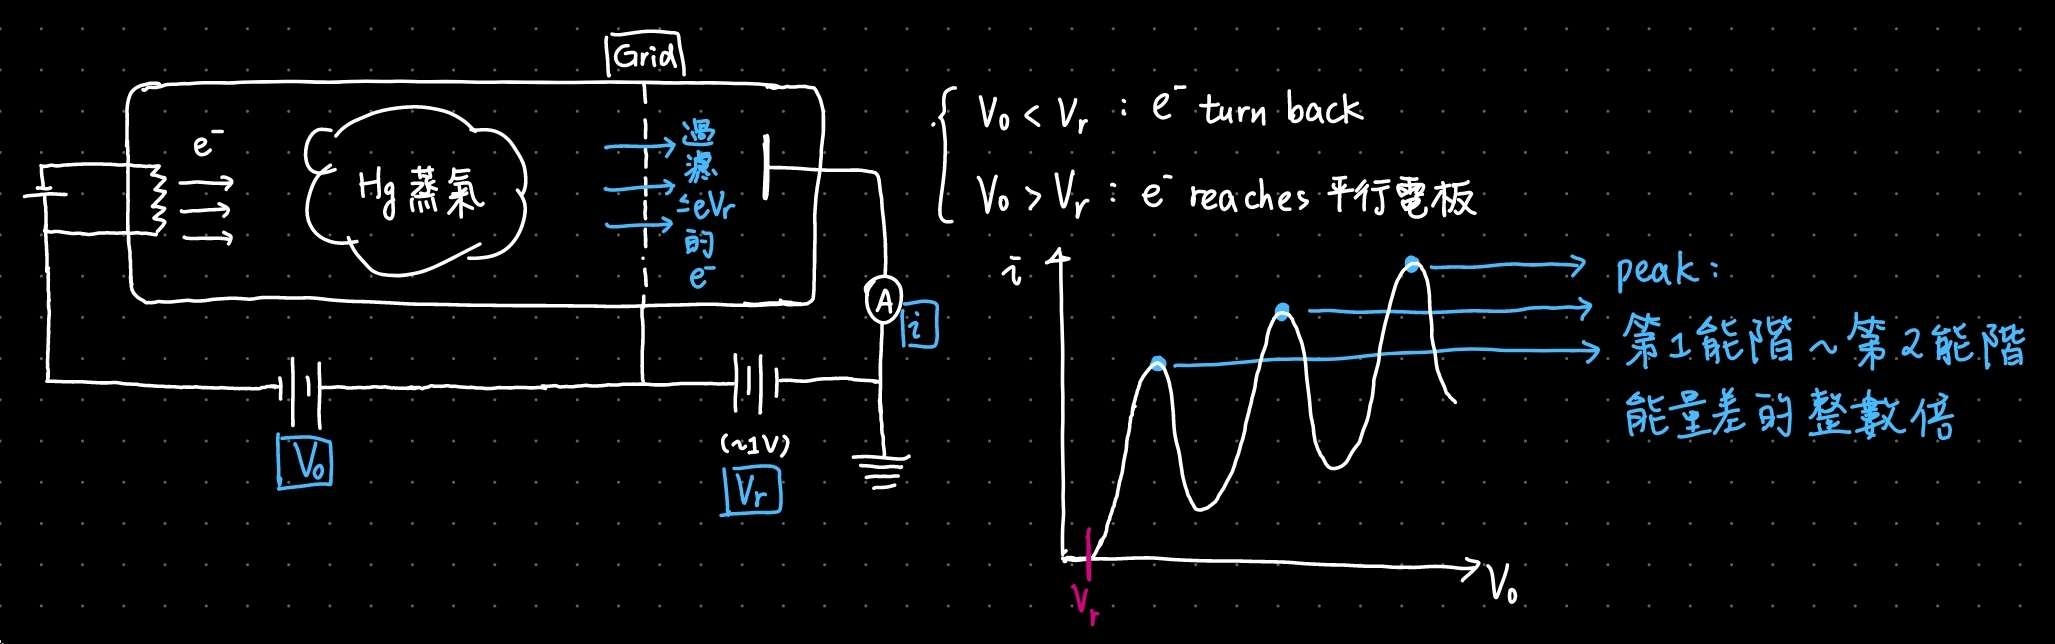 Grid
e⁻
Hg 蒸氣
過
濾
≤eVr
的
e⁻
A
i
V₀
(~1V)
Vr
V₀ < Vr : e⁻ turn back
V₀ > Vr : e⁻ reaches 平行電板
i
V₀
Vr
peak:
第1能階~第2能階
能量差的整數倍